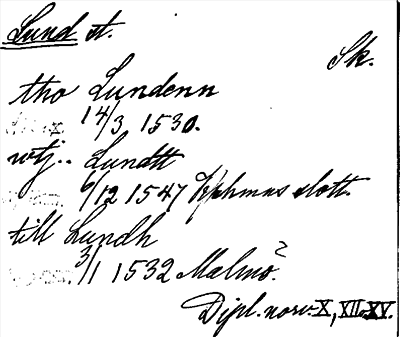 Lund st.
Sk.
tho Lundenn
14/3 1530.
wtj.. Lundtt
6/12 1547 Kphmns slott.
till Lundh
3/1 1532 Malmö?
Dipl. norv. X, XII, XV.